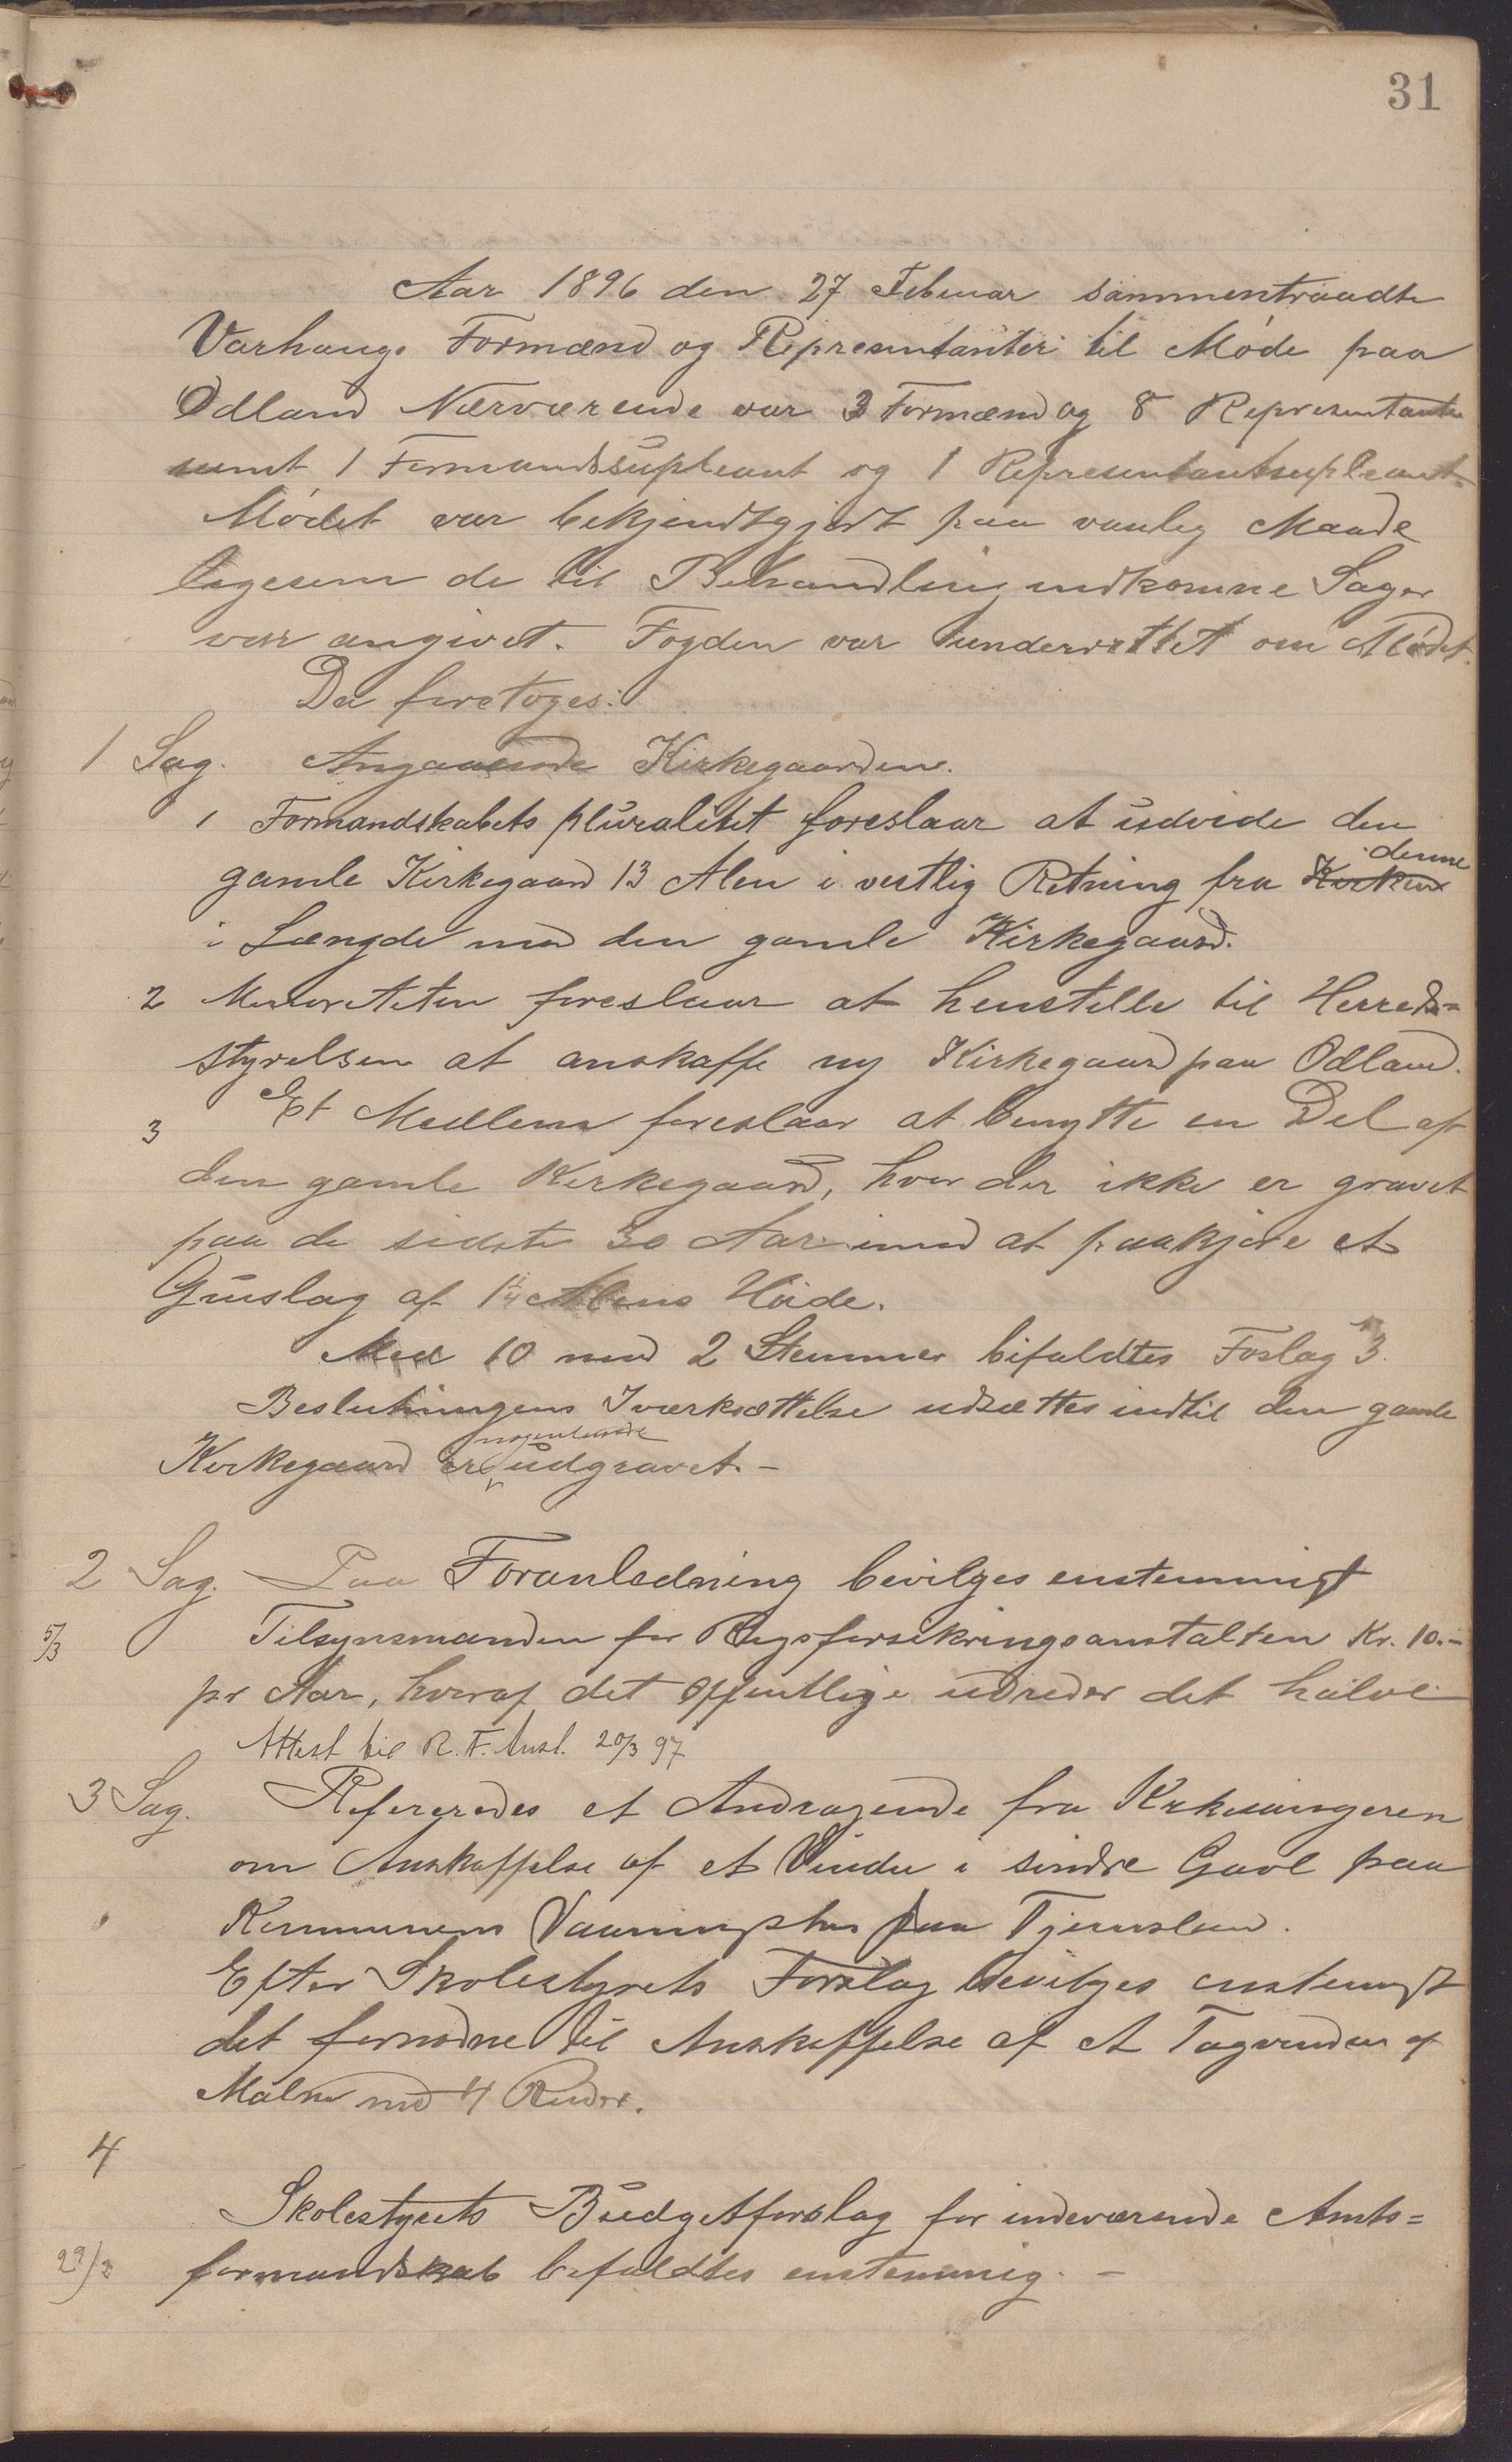 31
Aar 1896 den 27 Februar sammentraadte
Varhaugs Formænd og Representanter til Møde paa
Odland Nærværende var 3 Formænd og 8 Representanter
samt 1 Formandssupleant og 1 Representantsupleant.
Mødet var bekjendtgjort paa vanlig Maade
ligesom de til Behandling indkomne Sager
var angivet. Fogden var underrettet om Mødet.
Da foretoges:
1 Sag. Angaaende Kirkegaarden.
1 Formandskabets pluralitet foreslaar at udvide den
gamle Kirkegaard 13 Alen i vestlig Retning fra Kirken denne
i Længde med den gamle Kirkegaard.
2 Minoriteten foreslaar at henstille til Herreds=
styrelsen at anskaffe ny Kirkegaard paa Odland.
3 Et Medlem foreslaar at benytte en Del af
den gamle Kirkegaard, hvor der ikke er gravet
paa de sidste 30 Aar imod at paakjøre et
Gruslag af 1 1/4 Alens Høide.
Med 10 mod 2 Stemmer bifaldtes Foslag 3.
Beslutningens Iværksættelse udsættes indtil den gamle
Kirkegaard er nogenlunde udgravet. -
2 Sag. Paa Foranledning bevilges enstemmigt
5/3 Tilsynsmanden for Rigsforsikringsanstalten Kr. 10.-
pr Aar, hvoraf det offentlige udreder det halve
Attest til R. F. Anst. 20/3 97
3 Sag. Refereredes et Andragende fra Kirkesangeren
om Anskaffelse af et Vindu i søndre Gavl paa
Kommunens Vaaningshus paa Tjemsland.
Efter Skolestyrets Forslag bevilges enstemigt
det fornødne til Anskaffelse af et Tagvindu af
Malm med 4 Ruder.
4
Skolestyrets Budgetforslag for indeværende Amts=
22/3 formandskab bifaldtes enstemmig. -